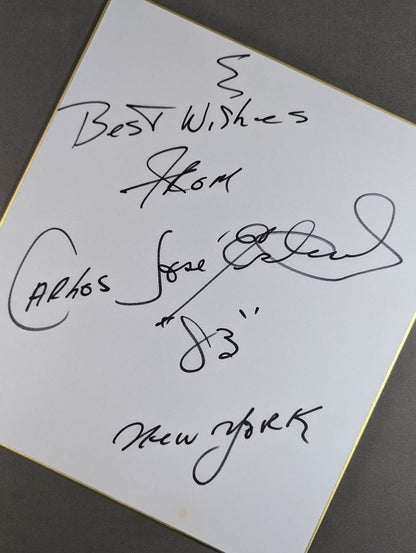 Best Wishes
From
Carlos José
"83"
New York